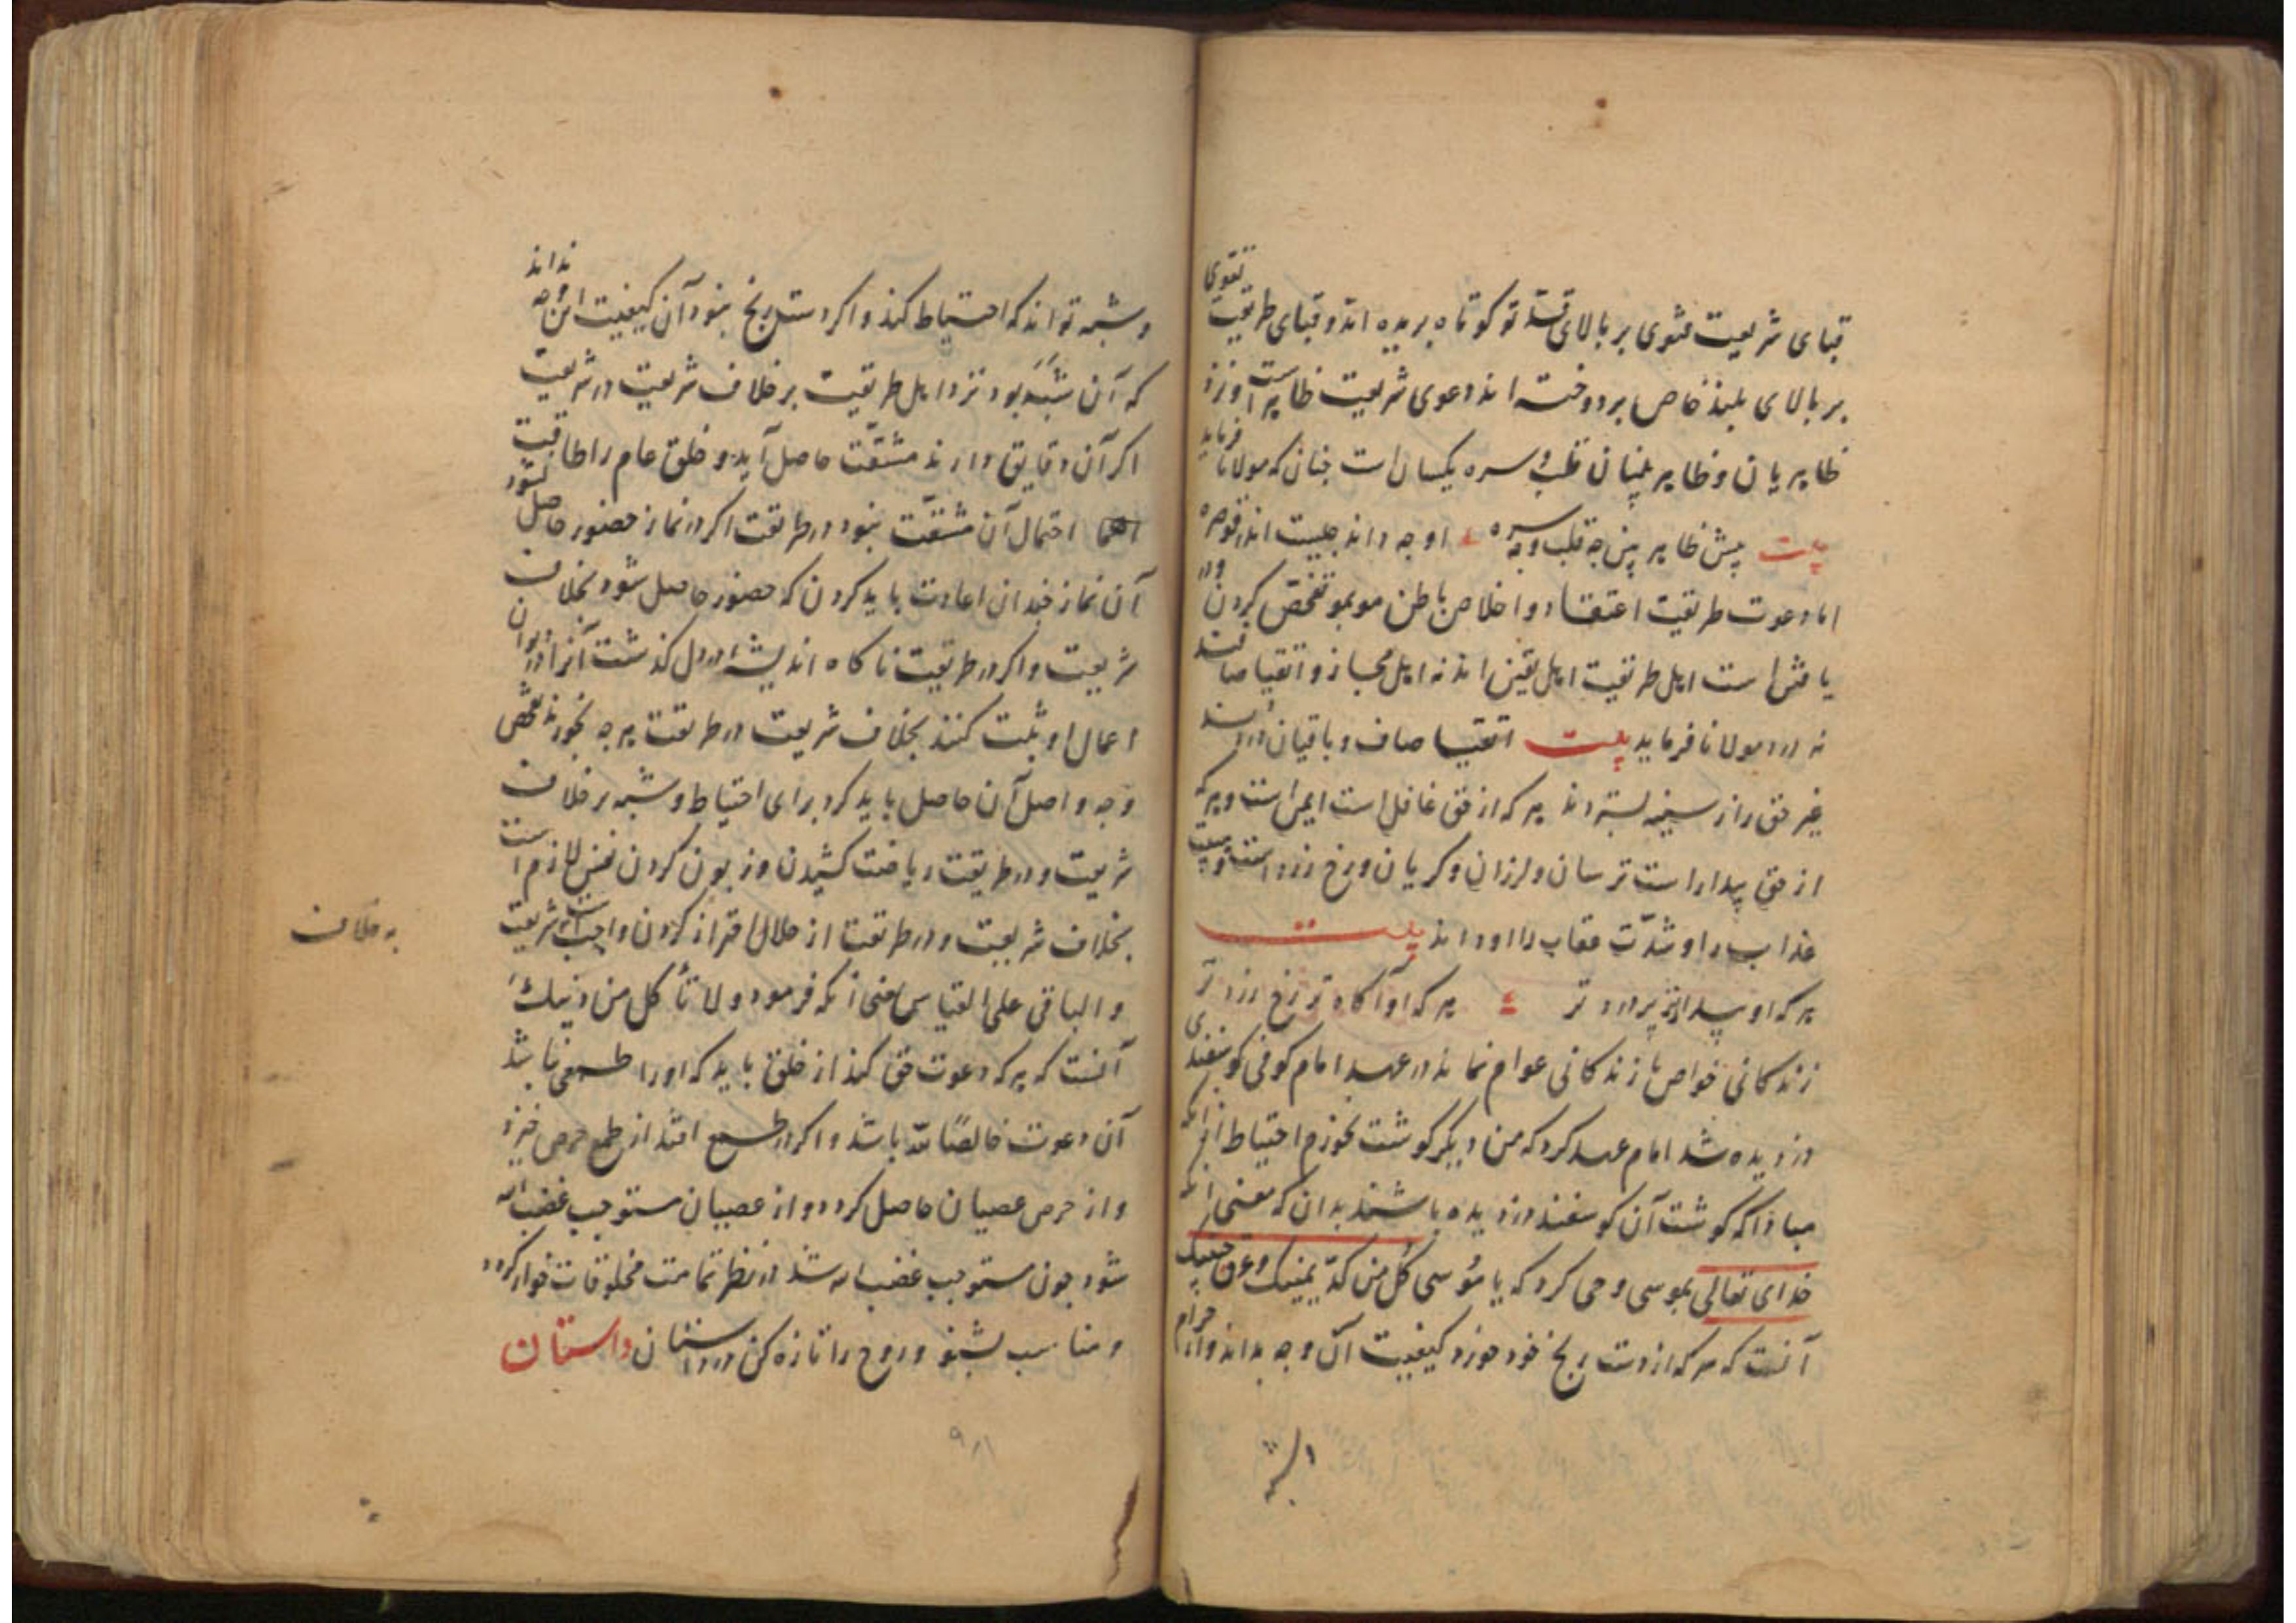 قبای شریعت فتوی بر بالای قد تو کوتاه بریده اند و قبای طریقت تقوی
بر بالای بلند خاص بر دوخته اند دعوی شریعت ظاهر است و نزد
ظاهریان و ظاهر بینان قلب و سره یکسان است چنان که مولانا فرماید
بیت پیش ظاهر بین چه قلب و چه سره او چه داند چیست اندر قوصره
اما دعوت طریقت اعتقاد و اخلاص باطن مو بمو تفحص کردن و در
یافتن است اهل طریقت اهل یقین اند نه اهل مجاز و اتقیا صافند
نه درد مولانا فرماید بیت اتقیا صاف و باقیان دردند
غیر حق راز سینه بسترداند هر که از حق غافل است ایمن است و هر که
از حق بیدار است ترسان و لرزان و کریان و رخ زرد است و هیبت
عذاب را و شدّت عقاب را او داند بیت
هر که او بیدارتر پر درد تر هر که او آکاه تر رخ زرد تر
زندکانی خواص با زندکانی عوام نماند در عهد امام کوفی کوسفندی
دزدیده شد امام عهد کرد که من دیکر کوشت نخورم احتیاط از آنکه
مبادا که کوشت آن کوسفند دزدیده باشند بدان که معنی آنکه
خدای تعالی بموسی وحی کرد که یا مُوسی کُل من کدّ یمینک و عرق جبینک
آنست که هر که از دست رنج خود خورد کیفیت آن وجه بداند و از حرام
و شبهه تواند که احتیاط کند و اکر دست رنج نبود آن کیفیت این وجه نداند
که آن شبه بود نزد اهل طریقت بر خلاف شریعت در شریعت
اکر آن دقایق دارند مشقّت حاصل آید و خلق عام را طاقت
احتمال آن مشقّت نبود در طریقت اکر در نماز حضور حاصل نشود
آن نماز چندان اعادت باید کردن که حضور حاصل شود بخلاف
شریعت و اکر در طریقت ناکاه اندیشه در دل کذشت آنرا در دیوان
اعمال او ثبت کنند بخلاف شریعت در طریقت هر چه بخورند تفحص
وجه و اصل آن حاصل باید کرد برای احتیاط و شبهه بر خلاف
شریعت و در طریقت ریاضت کشیدن و زبون کردن نفس لازم است
بخلاف شریعت و در طریقت از حلال احتراز کردن واجب است شریعت
به خلاف
و الباقی علی القیاس معنی آنکه فرمود و لا تأکل من دینک
آنست که هر که دعوت حق کند از خلق باید که او را طمعی نباشد
آن دعوت خالصًا لله باشد و اکر در طمع افتد از طمع حرص خیزد
و از حرص عصیان حاصل کردد و از عصیان مستوجب غضب الله
شود چون مستوجب غضب الله شد در نظر تمامت مخلوقات خوار کردد
و مناسب بشنو و روح را تازه کن در داستان داستان
۹۸